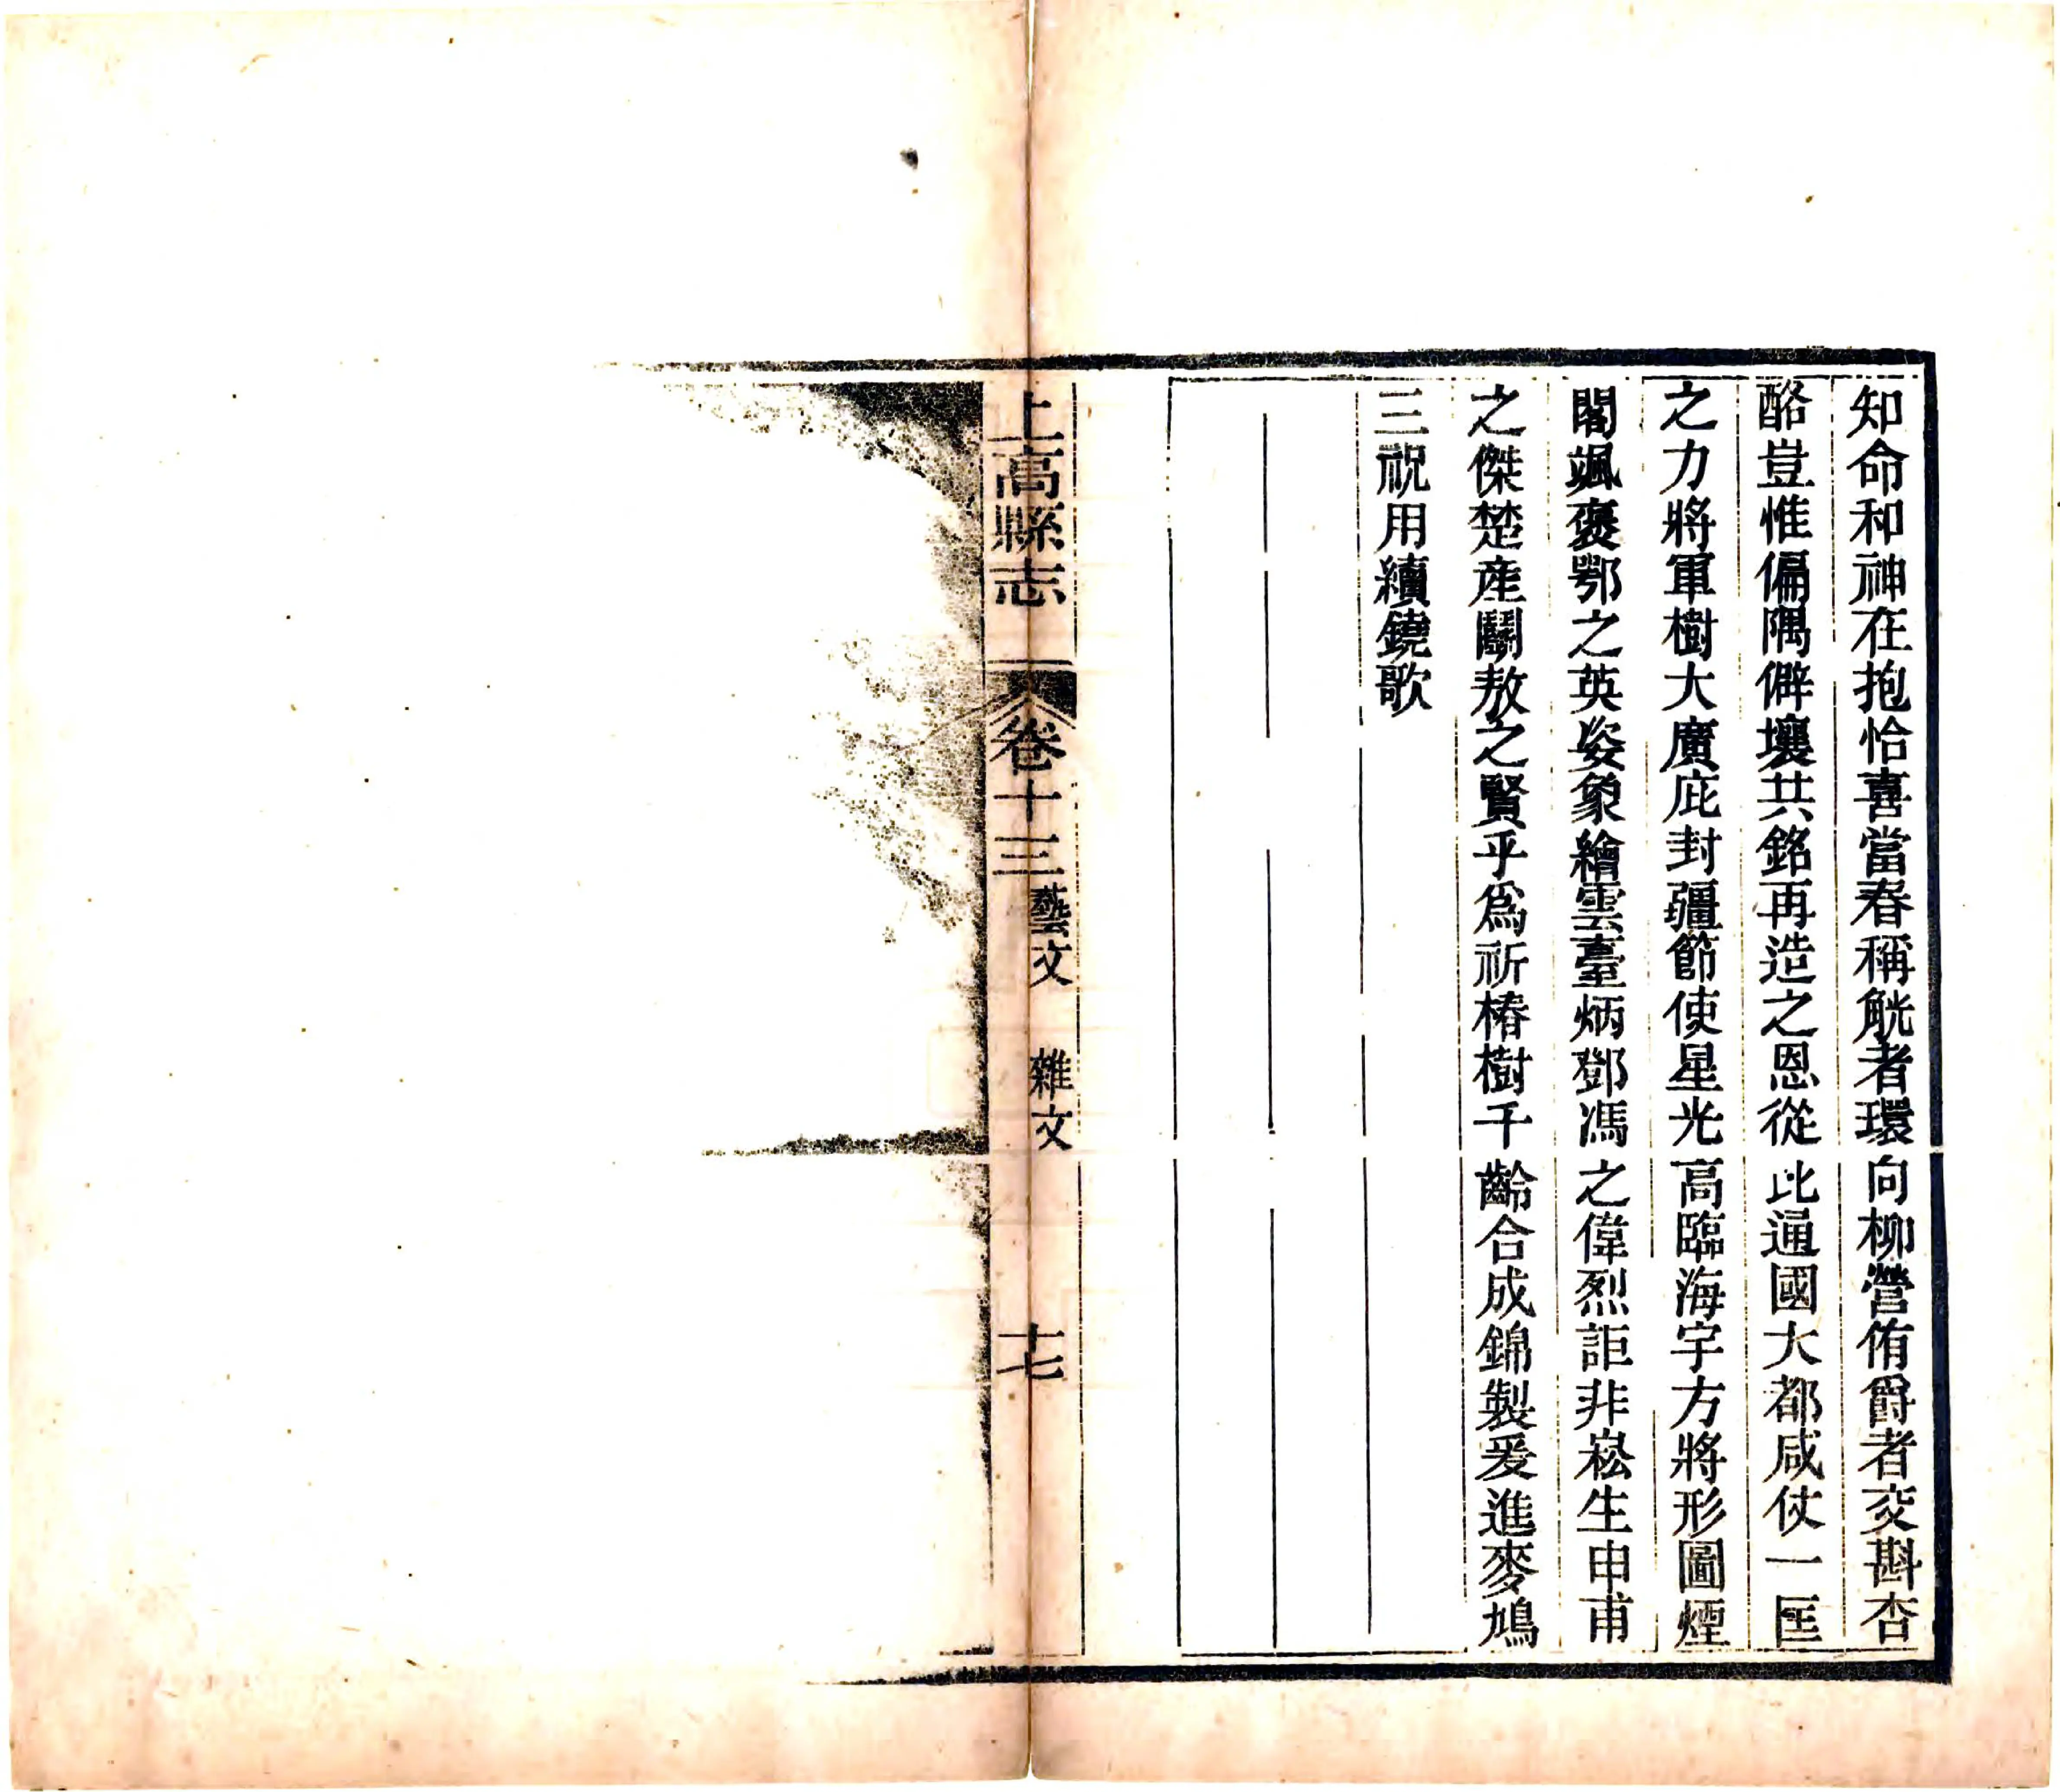 知命和神在抱恰喜當春稱觥者環向柳營侑爵者交斟杏
酪豈惟偏隅僻壤共銘再造之恩從此通國大都咸仗一匡
之力將軍樹大廣庇封疆節使星光高臨海宇方將形圖煙
閣颯褒鄂之英姿象繪雲臺炳鄧馮之偉烈詎非崧生申甫
之傑楚産鬭敖之賢乎爲祈椿樹千齡合成錦製爰進麥鳩
三祝用續鐃歌
上高縣志 卷十三 藝文 雜文 十七